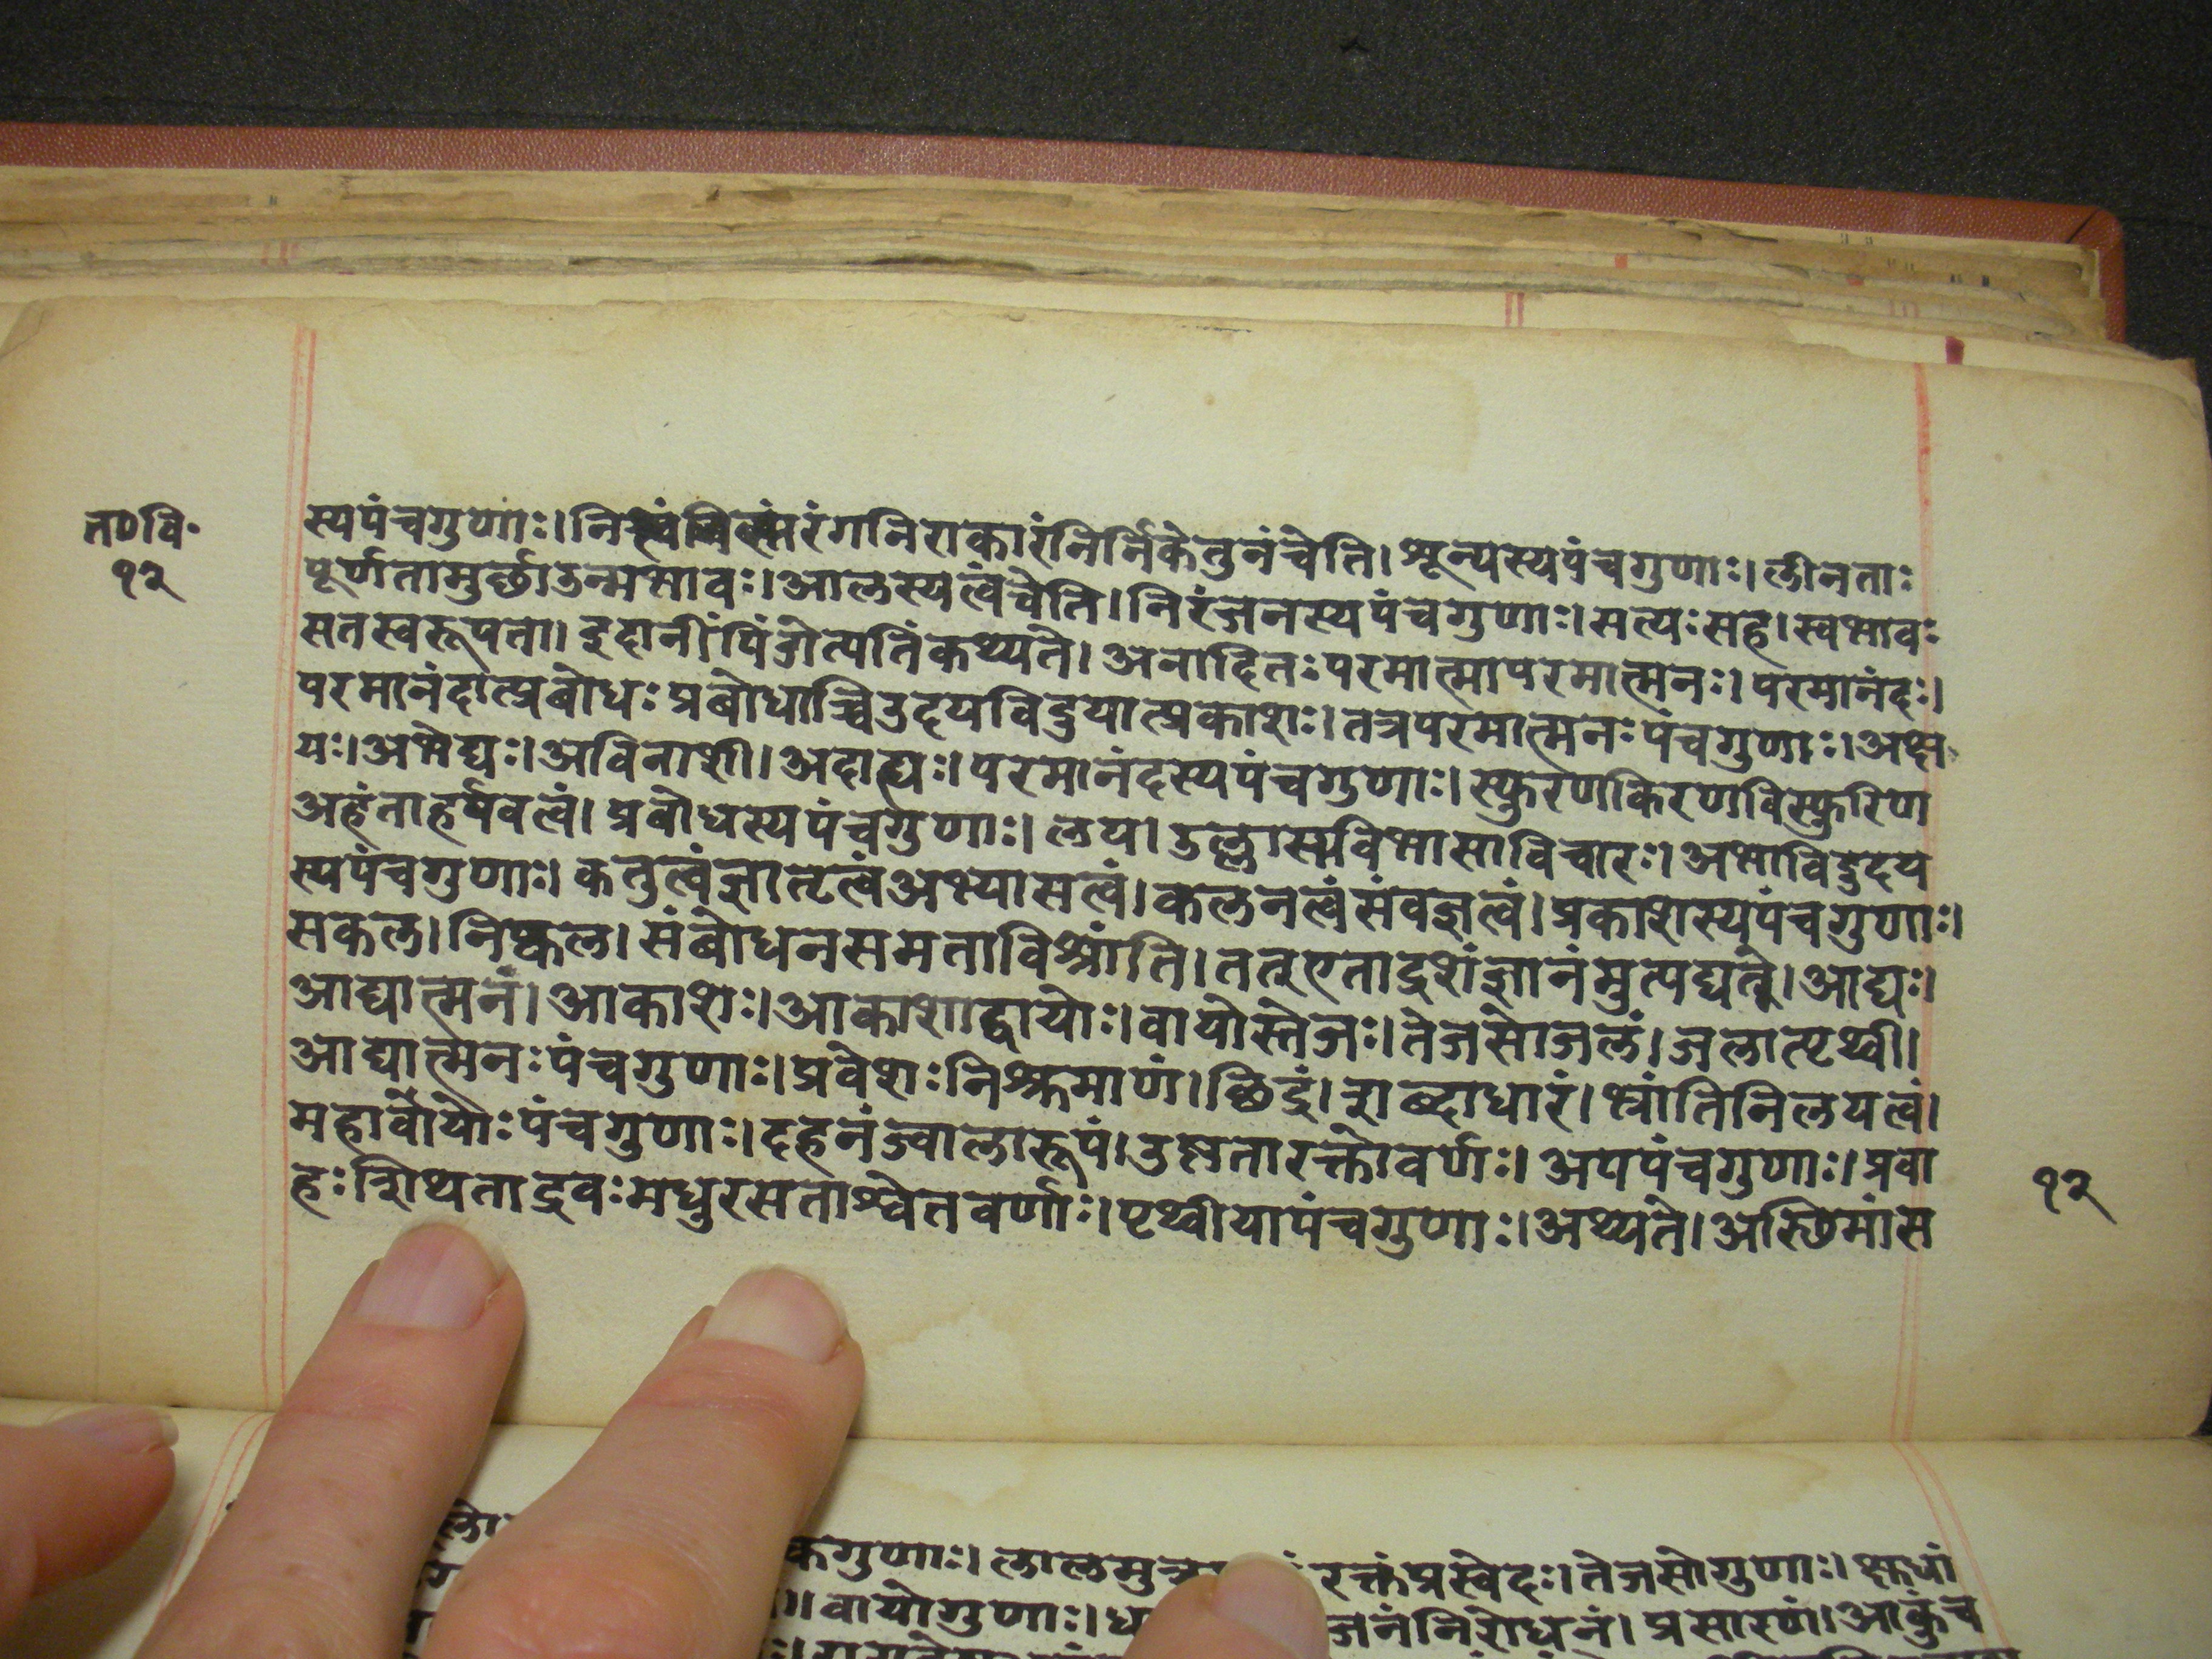 त०वि॰
१२
स्यपंचगुणाः।नि रंगनिराकारंनिर्निकेतुनंचेति।श्रून्यस्यपंचगुणाः।लीनताः
पूर्णतामुर्छाउन्मभावः।आलस्यत्वंचेति।निरंजनस्यपंचगुणाः।सत्यःसह।स्वभावः
सतस्वरूपता।इदानींपिंडोत्पतिंकथ्यते।अनाहितःपरमात्मापरमात्मनः।परमानंदः।
परमानंदात्प्रबोधःप्रबोधाच्चिउदयविदुयात्प्रकाशः।तत्रपरमात्मनःपंचगुणाः।अक्ष
यः।अभेद्यः।अविनाशी।अदाह्यः।परमानंदस्यपंचगुणाः।स्फुरणकिरणविस्फुरिण
अहंताहर्षवत्वं।प्रबोधस्यपंचगुणाः।लय।उल्लास्यविभासाविचारः।अभाविदुदय
स्यपंचगुणाः।कतुत्वंज्ञातृत्वंअभ्यासत्वं।कलनत्वंसंवज्ञत्वं।प्रकाशस्यपंचगुणाः।
सकल।निष्कल।संबोधनसमताविश्रांति।ततुएतादुशंज्ञानंमुत्पद्यते।आद्यः।
आद्यात्मनं।आकाशः।आकाशाद्वायोः।वायोस्तेजः।तेजसोजलं।जलात्पृथ्वी।
आद्यात्मनःपंचगुणाः।प्रवेशःनिश्क्रमाणं।छिद्रं।शब्दाधारं।भ्रांतिनिलयत्वं।
महार्वायोःपंचगुणाः।दहनंज्वालारूपं।उष्णतारक्तोवर्णः।अपपंचगुणाः।प्रवा
हःशिथताद्रवःमधुरसताश्वेतवर्णाः।पृथ्वीयापंचगुणाः।अथ्यते।अस्थिमांस
१२
कगुणाः।लालमुत्र रक्तंप्रस्वेदः।तेजसोगुणाः।क्षुधां
वायोगुणाः। जनंनिरोधनं।प्रसारणं।आकुंच